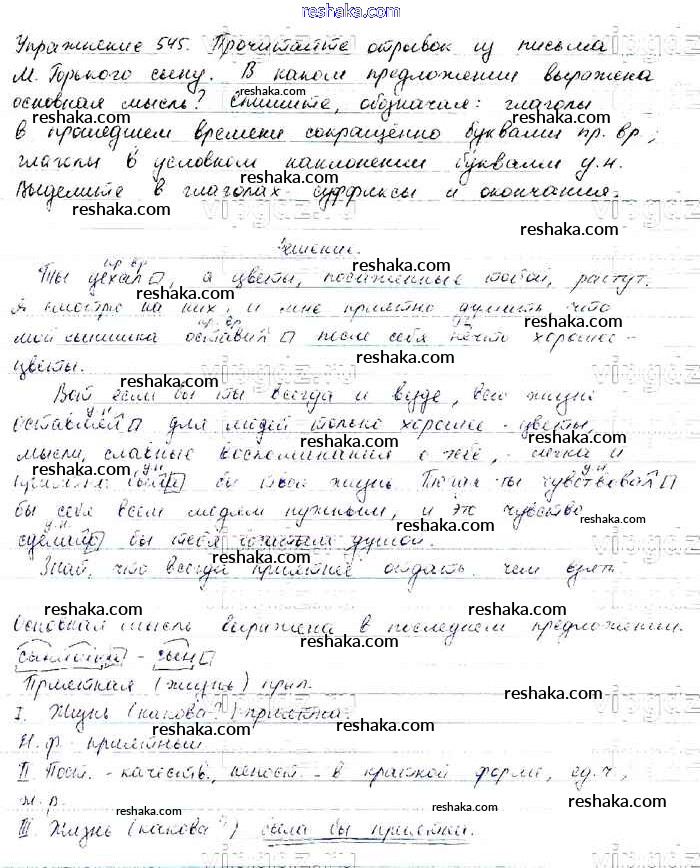 reshaka.com
Упражнение 545. Прочитайте отрывок из письма
М. Горького сыну. В каком предложении выражена
основная мысль? Спишите, обозначая: глаголы
в прошедшем времени сокращённо буквами пр. вр.;
глаголы в условном наклонении буквами у.н.
Выделите в глаголах суффиксы и окончания.
Решение.
пр. вр.
Ты уехал, а цветы, посаженные тобой, растут.
Я смотрю на них, и мне приятно думать, что
пр. вр.
мой сынишка оставил после себя нечто хорошее -
цветы.
Вот если бы ты всегда и везде, всю жизнь
у.н.
оставлял для людей только хорошее - цветы,
мысли, славные воспоминания о тебе, - легка и
у.н. у.н.
приятна была бы твоя жизнь. Тогда ты чувствовал
бы себя всем людям нужным, и это чувство
у.н.
сделало бы тебя богатым душой.
Знай, что всегда приятнее отдать, чем взять.
Основная мысль выражена в последнем предложении.
сынишка - сын
Приятная (жизнь) прил.
I. Жизнь (какова?) приятна.
Н. ф. - приятный
II. Пост. - качеств., непост. - в краткой форме, ед. ч.,
ж. р.
III. Жизнь (какова?) была бы приятна.